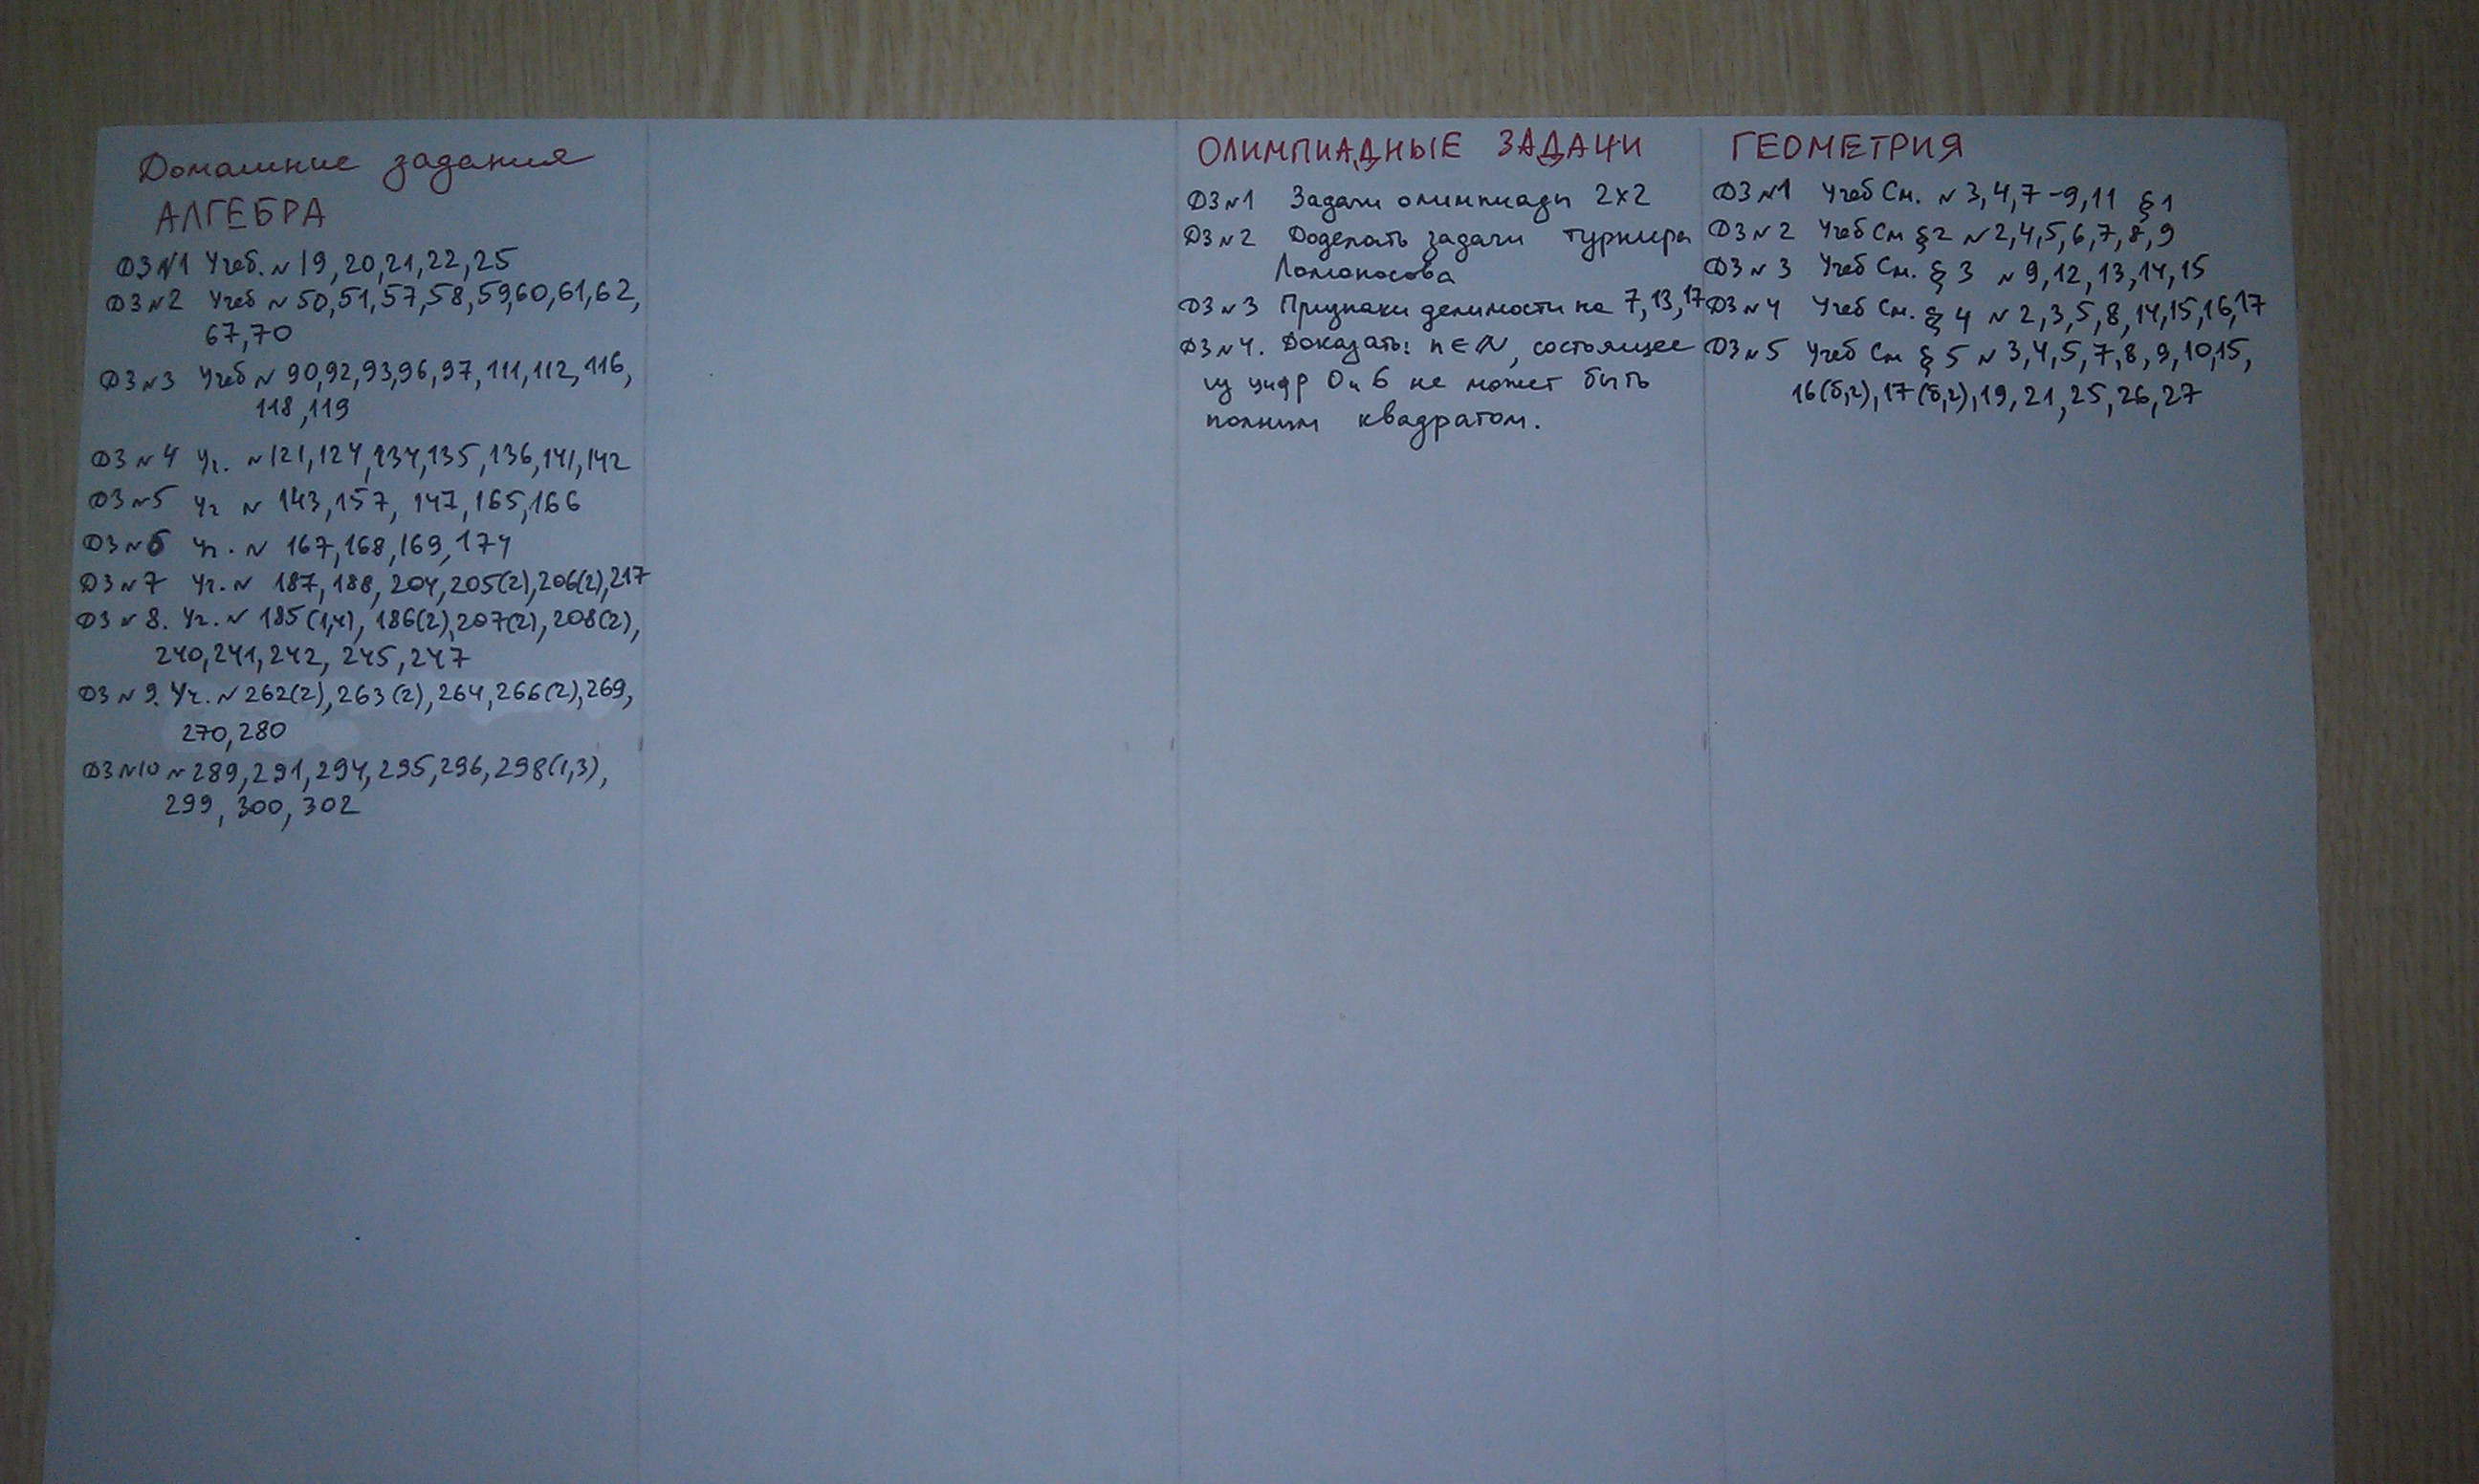 Домашние задания
АЛГЕБРА
ДЗ №1 Учеб. № 19, 20, 21, 22, 25
ДЗ №2 Учеб № 50, 51, 57, 58, 59, 60, 61, 62,
67, 70
ДЗ №3 Учеб № 90, 92, 93, 96, 97, 111, 112, 116,
118, 119
ДЗ №4 Уч. № 121, 124, 134, 135, 136, 141, 142
ДЗ №5 Уч № 143, 157, 147, 165, 166
ДЗ №6 Уч. № 167, 168, 169, 174
ДЗ №7 Уч. № 187, 188, 204, 205(2), 206(2), 217
ДЗ №8. Уч. № 185(1,4), 186(2), 207(2), 208(2),
240, 241, 242, 245, 247
ДЗ №9. Уч. № 262(2), 263(2), 264, 266(2), 269,
270, 280
ДЗ №10 № 289, 291, 294, 295, 296, 298(1,3),
299, 300, 302
ОЛИМПИАДНЫЕ ЗАДАЧИ
ДЗ №1 Задачи олимпиады 2x2
ДЗ №2 Доделать задачи турнира
Ломоносова
ДЗ №3 Признаки делимости на 7, 13, 17
ДЗ №4. Доказать: n∈N, состоящее
из цифр 0 и 6 не может быть
полным квадратом.
ГЕОМЕТРИЯ
ДЗ №1 Учеб См. № 3, 4, 7-9, 11 §1
ДЗ №2 Учеб См §2 № 2, 4, 5, 6, 7, 8, 9
ДЗ №3 Учеб См. §3 № 9, 12, 13, 14, 15
ДЗ №4 Учеб См. §4 № 2, 3, 5, 8, 14, 15, 16, 17
ДЗ №5 Учеб См §5 № 3, 4, 5, 7, 8, 9, 10, 15,
16(б,г), 17(б,г), 19, 21, 25, 26, 27